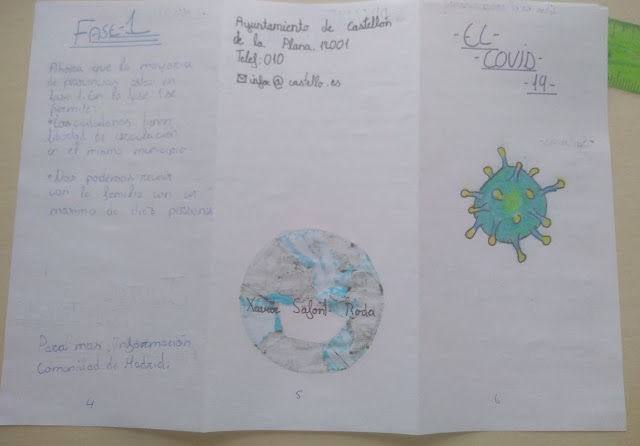 FASE-1
Ahora que la mayoria
de provincias estan en
fase 1 en la fase 1 se
permite:
•Los ciudadanos tienen
libertad de circulación
en el mismo municipio
•Nos podemos reunir
con la familia con un
maximo de diez personas
Para mas información
Comunidad de Madrid.
4
Ayuntamiento de Castellón
de la Plana. 12001
Telef: 010
info@castello.es
Xavier Safont Roda
5
-EL-
-COVID-
-19-
6